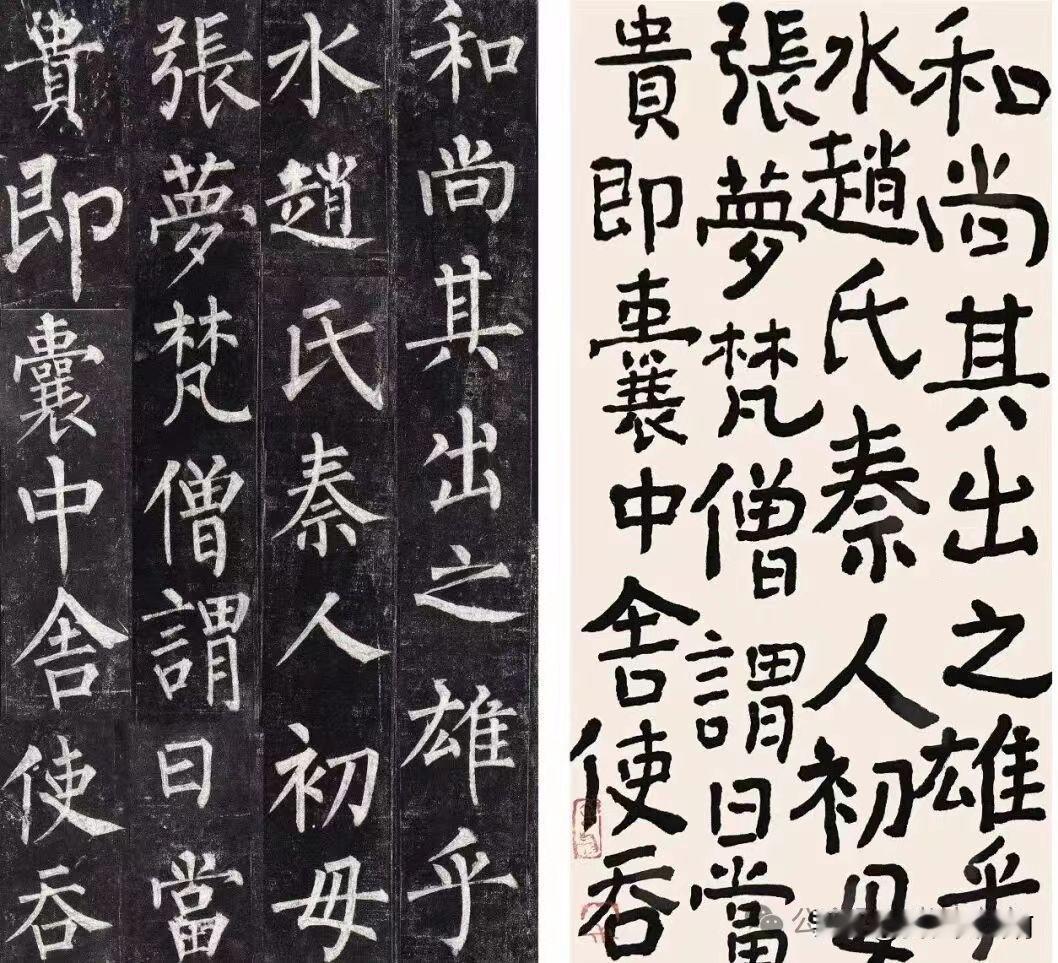 和尚其出之雄乎
水趙氏秦人初母
張夢梵僧謂曰當
貴即囊中舍使吞
和尚其出之雄乎
水趙氏秦人初母
張夢梵僧謂曰當
貴即囊中舍使吞